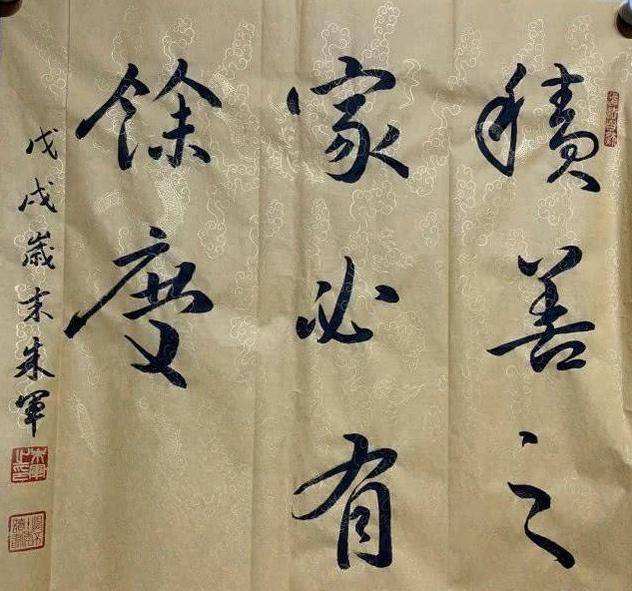 積善之
家必有
餘慶
戊戌歲末朱軍